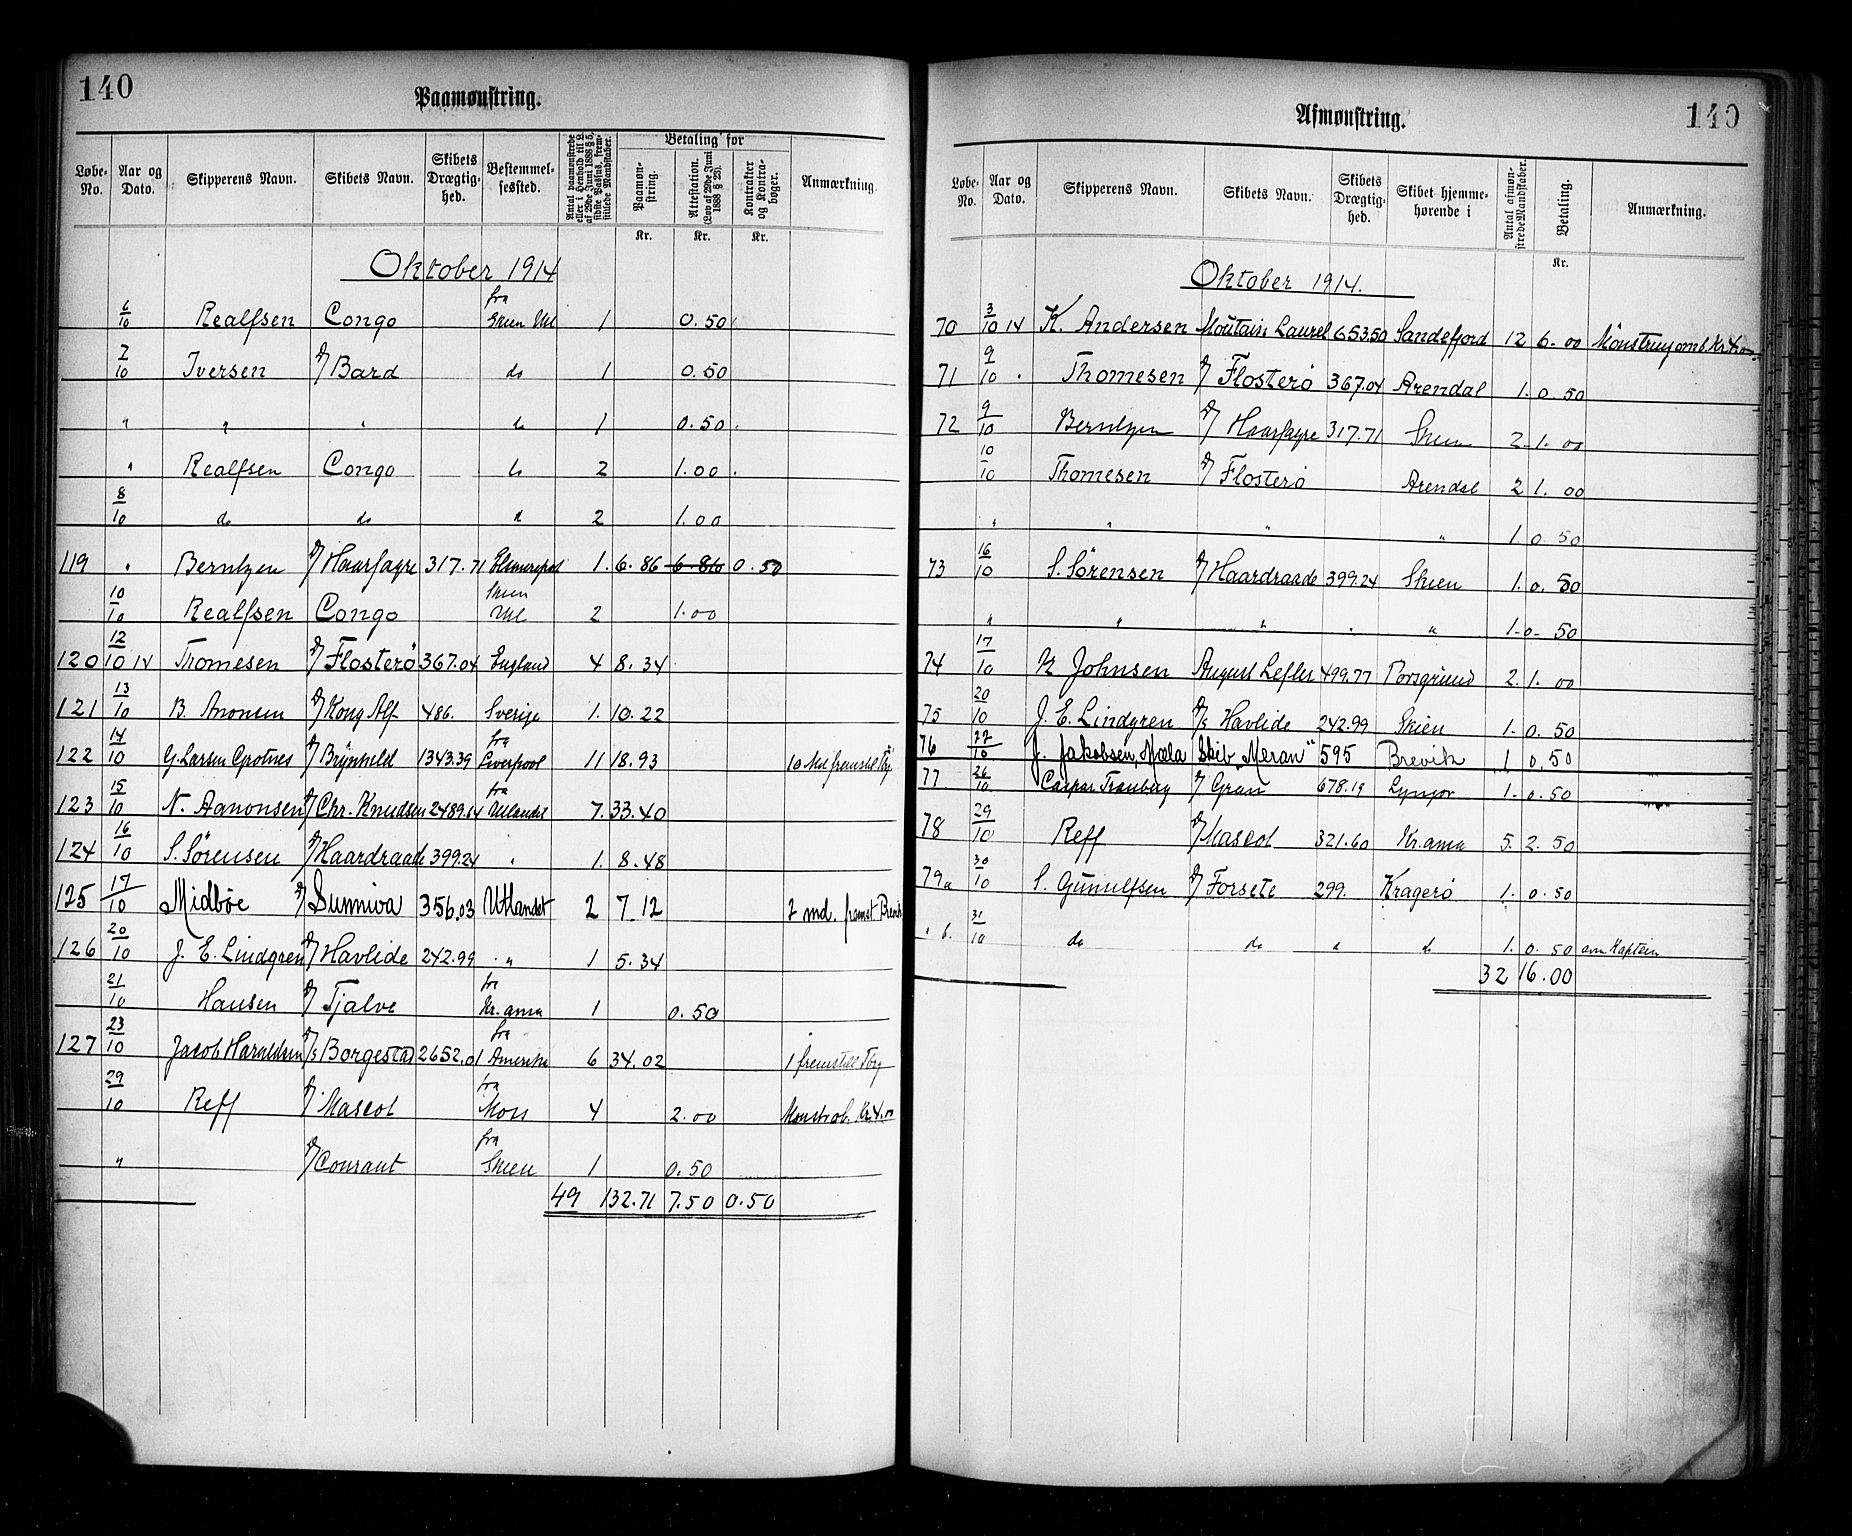 140
Paamønstring.
Løbe-No. Aar og Dato. Skipperens Navn. Skibets Navn. Skibets Drægtighed. Bestemmelsessted. Antal paamønstrede eller i Henhold til L. af 29de Juni 1888 § 5, sidste Passus, fremstillede Mandskaber. Betaling for Paamønstring. Attestation. (Lov af 29de Juni 1888 § 23). Kontrakter og Kontrabøger. Anmærkning.
Kr. Kr. Kr.
Oktober 1914
6/10 Realfsen Congo fra Skien Utl 1 0.50
7/10 Iversen D/ Bard do 1 0.50
" " " do 1 0.50
" Realfsen Congo do 2 1.00
8/10 do do d 2 1.00
119 " Berntzen D/ Haarfagre 317.71 1. 6.86 6.86 0.50
10/10 Realfsen Congo Skien Utl 2 1.00
120 12/10 14 Thomesen D/ Flosterö 367.04 England 4 8.34
121 13/10 B. Aronsen D/ Kong Alf 486. Sverige 1. 10.22
122 14/10 G. Larsen Grotnes D/ Brynhild 1343.39 fra Liverpool 11 18.93 10 Md fremstil Tbg
123 15/10 N. Aanonsen D/ Chr. Knudsen 2489.64 fra Utlandet 7. 33.40
124 16/10 S. Sörensen D/ Haardraade 399.24 " 1. 8.48
125 17/10 Midbøe D/ Sunniva 356.03 Utlandet 2 7.12 2 md. fremst Brevik
126 20/10 J. E. Lindgren D/ Havlide 242.99 " 1 5.34
21/10 Hansen D/ Tjalve fra Kr.ania 1 0.50
127 23/10 Jacob Haraldsen D/s Borgestad 2652.01 fra Amerika 6 34.02 1 fremstill Tbg
29/10 Reff D/ Mascot fra Moss 4 2.00 Mønstr.omb. Kr. 4.00
" D/ Courant fra Skien 1 0.50
49 132.71 7.50 0.50
Afmønstring.
140
Løbe-No. Aar og Dato. Skipperens Navn. Skibets Navn. Skibets Drægtighed. Skibet hjemmehørende i Antal afmønstrede Mandskaber. Betaling. Anmærkning.
Kr.
Oktober 1914.
70 3/10 14 K. Andersen Moutain Laurel 653.50 Sandefjord 12 6.00 Mønstringomb. Kr 4.00
71 9/10 Thomesen D/ Flosterö 367.04 Arendal 1. 0.50
72 9/10 Berntzen D/ Haarfagre 317.71 Skien 2 1.00
10/10 Thomesen D/ Flosterö Arendal 2 1.00
" " " " 1. 0.50
73 16/10 S. Sörensen D/ Haardraade 399.24 Skien 1. 0.50
" " " " " 1. 0.50
74 17/10 K Johnsen August Leffler 499.77 Porsgrund 2. 1.00
75 20/10 J. E. Lindgren D/s Havlide 242.99 Skien 1. 0.50
76 22/10 J. Jakobsen, Mæla Skib "Meran" 595 Brevik 1 0.50
77 26/10 Caspar Tranberg D/ Gran 678.19 Lyngør 1. 0.50
78 29/10 Reff D/ Mascot 321.60 Kr.ania 5. 2.50
79a 30/10 S. Gunulfsen D/ Forsete 299. Kragerö 1. 0.50
" b. 31/10 do do " do 1. 0.50 om Kaptein
32 16.00